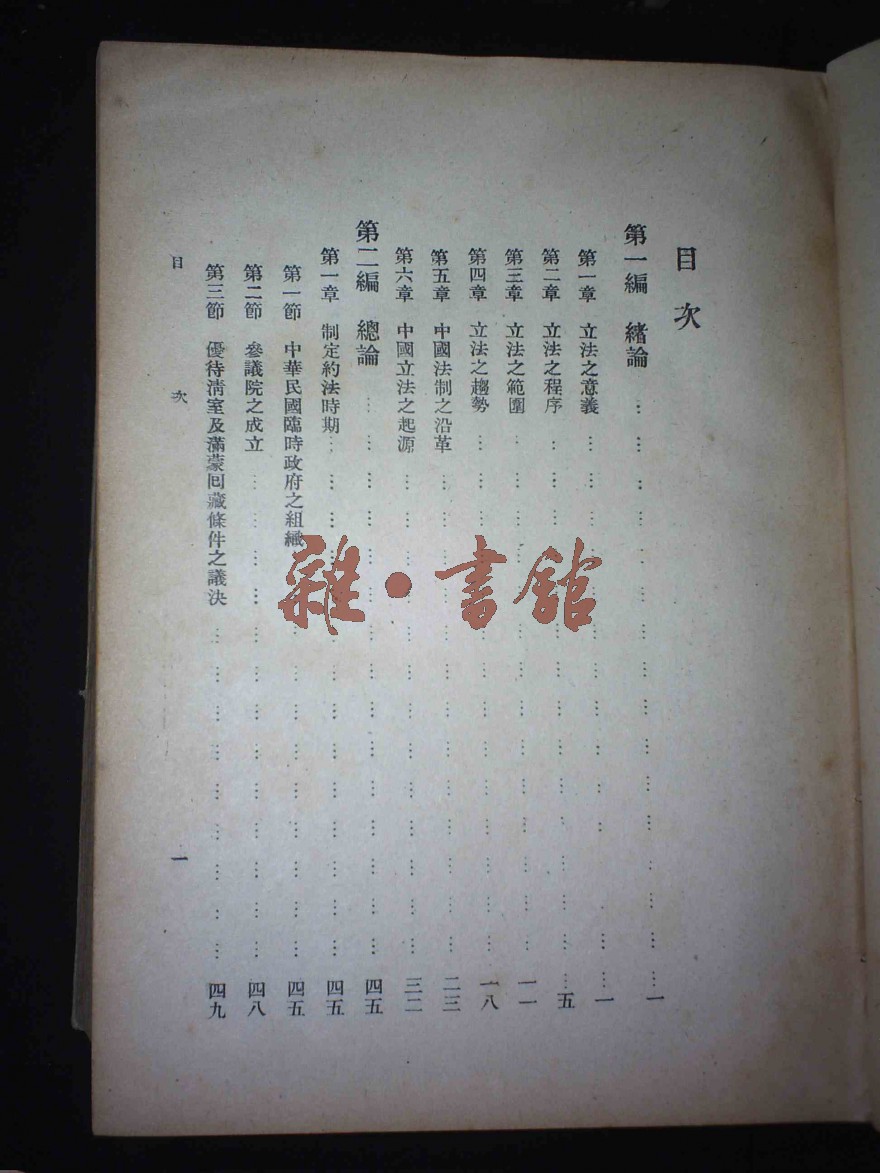 目次
第一編 緒論……一
第一章 立法之意義……一
第二章 立法之程序……五
第三章 立法之範圍……一一
第四章 立法之趨勢……一八
第五章 中國法制之沿革……二三
第六章 中國立法之起源……三二
第二編 總論……四五
第一章 制定約法時期……四五
第一節 中華民國臨時政府之組織……四五
第二節 參議院之成立……四八
第三節 優待淸室及滿蒙回藏條件之議決……四九
目次 一
雜·書館